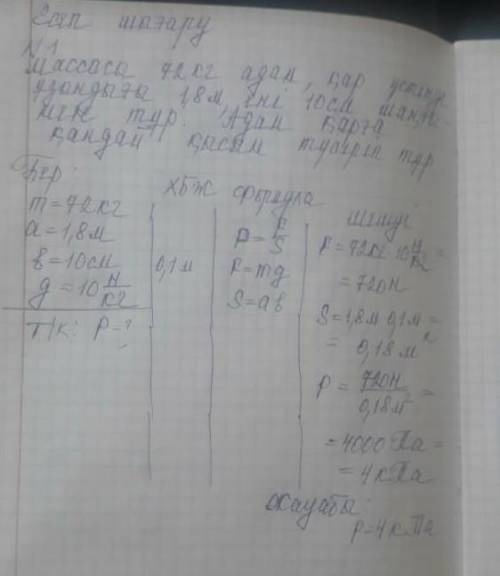 Есеп шығару
№1
Массасы 72кг адам қар үстінде
ұзындығы 1,8м, ені 10см шаңғы-
мен тұр. Адам қарға
қандай қысым түсіріп тұр
Бер:
m = 72кг
a = 1,8м
b = 10см
g = 10 Н/кг
Т/к: P - ?
ХБЖ
0,1м
формула
P = F/S
F = mg
S = ab
Шешуі
F = 72кг · 10 Н/кг =
= 720Н
S = 1,8м · 0,1м =
= 0,18м²
P = 720Н/0,18м² =
= 4000Па =
= 4кПа
Жауабы:
P = 4кПа